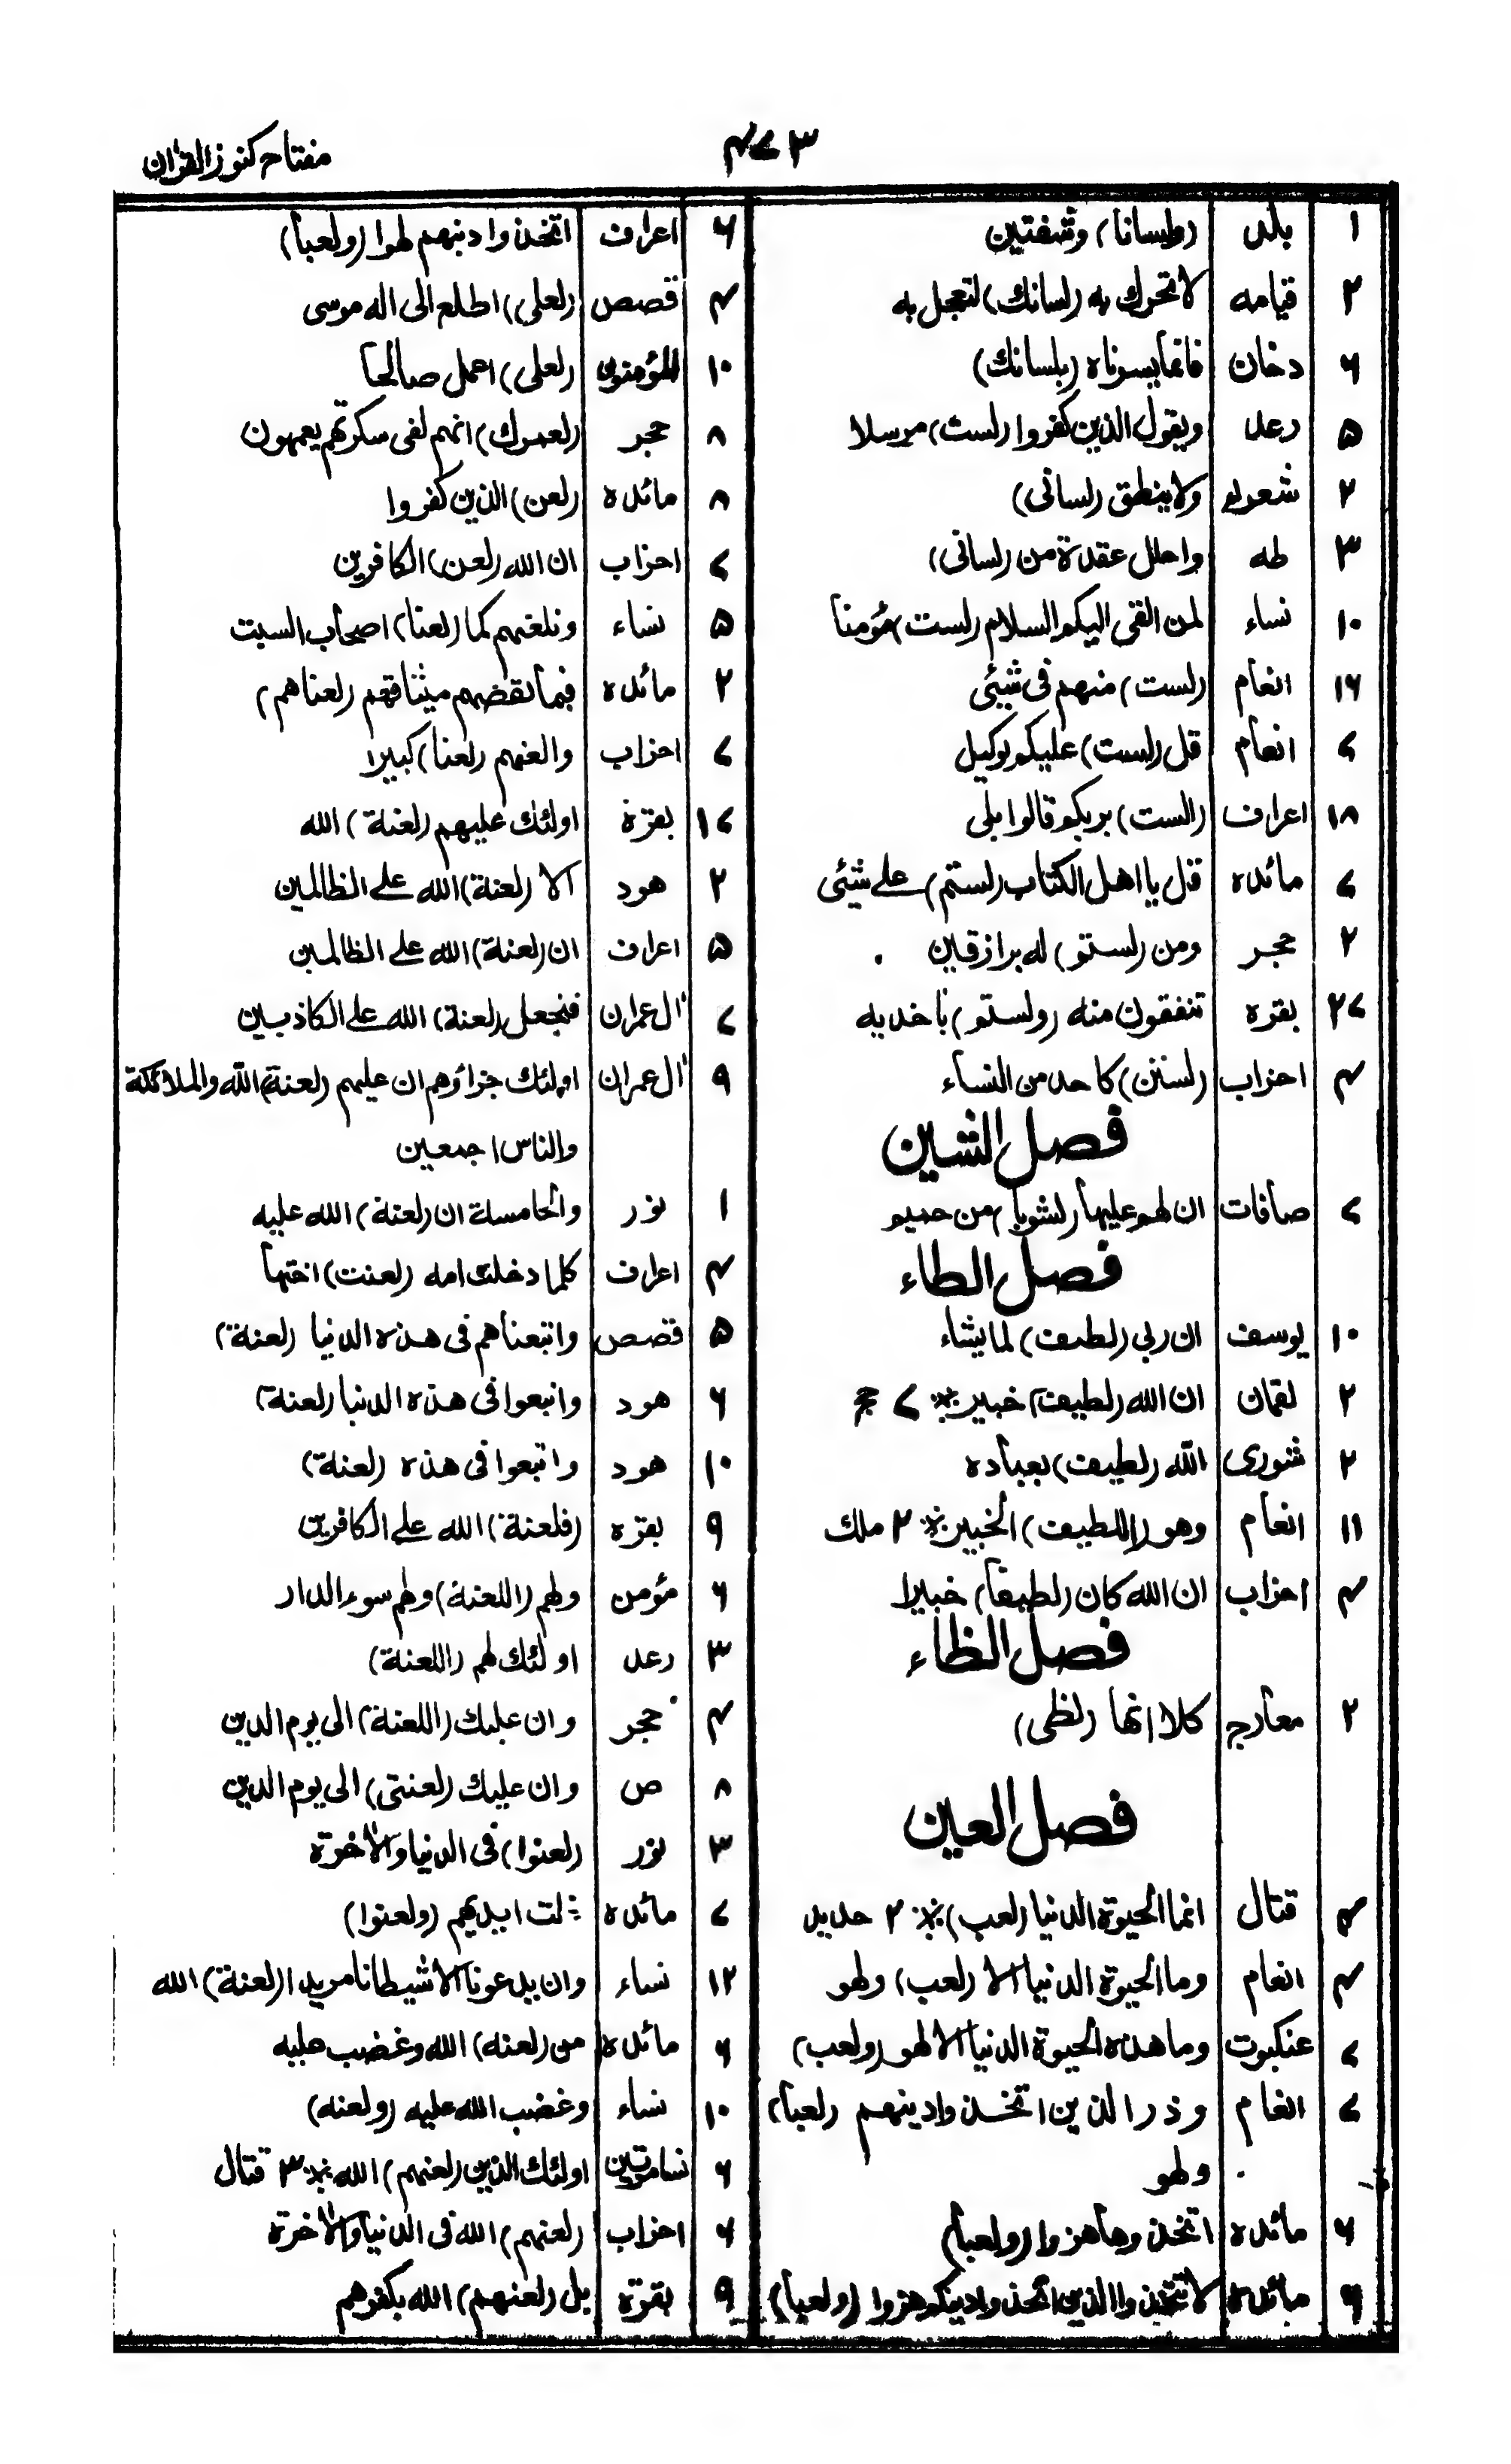 ۴۷۳
مفتاح کنوز القرآن
۱ بلد (ولسانا) وشفتین
۲ قیامه لاتحرك به (لسانك) لتعجل به
۶ دخان فانمایسوناه (بلسانك)
۵ رعد ویقول الذین کفروا (لست) مرسلا
۲ شعراء ولاینطق (لسانی)
۳ طه واحلل عقدة من (لسانی)
۱۰ نساء لمن القی الیکم السلام (لست) مؤمنا
۱۶ انعام (لست) منهم فی شیئی
۷ انعام قل (لست) علیکم بوکیل
۱۸ اعراف (الست) بربکم قالوا بلی
۷ مائده قل یا اهل الکتاب (لستم) علے شیئی
۲ حجر ومن (لستم) له برازقین
۲۷ بقره تنفقون منه (ولستم) باخذیه
۴ احزاب (لستن) کاحد من النساء
فصل الشین
۷ صافات ان لهم علیها (لشوبا) من حمیم
فصل الطاء
۱۰ یوسف ان ربی (لطیف) لما یشاء
۲ لقمان ان الله (لطیف) خبیر ※ ۷ حج
۲ شوری الله (لطیف) بعباده
۱۱ انعام وهو (اللطیف) الخبیر ※ ۲ ملك
۴ احزاب ان الله کان (لطیفا) خبیرا
فصل الظاء
۲ معارج کلا انها (لظی)
فصل العین
۴ قتال انما الحیوة الدنیا (لعب) ※ ۲ حدید
۴ انعام وما الحیوة الدنیا الا (لعب) ولهو
۷ عنکبوت وما هذه الحیوة الدنیا الا لهو (ولعب)
۷ انعام وذر الذین اتخذوا دینهم (لعبا)
ولهو
۶ مائده اتخذوها هزوا (ولعبا)
۹ مائده لا تتخذوا الذین اتخذوا دینکم هزوا (ولعبا)
۶ اعراف اتخذوا دینهم لهوا (ولعبا)
۴ قصص (لعلی) اطلع الی اله موسی
۱۰ المؤمنون (لعلی) اعمل صالحا
۸ حجر (لعمرك) انهم لفی سکرتهم یعمهون
۸ مائده (لعن) الذین کفروا
۷ احزاب ان الله (لعن) الکافرین
۵ نساء ونلعنهم کما (لعنا) اصحاب السبت
۲ مائده فبما نقضهم میثاقهم (لعناهم)
۷ احزاب والعنهم (لعنا) کبیرا
۱۷ بقرة اولئك علیهم (لعنة) الله
۲ هود الا (لعنة) الله علے الظالمین
۵ اعراف ان (لعنة) الله علے الظالمین
۷ اٰل عمران فنجعل (لعنة) الله علے الکاذبین
۹ اٰل عمران اولئك جزاؤهم ان علیهم (لعنة) الله والملائکة
والناس اجمعین
۱ نور والخامسة ان (لعنة) الله علیه
۴ اعراف کلما دخلت امه (لعنت) اختها
۵ قصص واتبعناهم فی هذه الدنیا (لعنة)
۶ هود واتبعوا فی هذه الدنیا (لعنة)
۱۰ هود واتبعوا فی هذه (لعنة)
۹ بقره (فلعنة) الله علے الکافرین
۶ مؤمن ولهم (اللعنة) ولهم سوء الدار
۳ رعد اولئك لهم (اللعنة)
۴ حجر وان علیك (اللعنة) الی یوم الدین
۸ ص وان علیك (لعنتی) الی یوم الدین
۳ نور (لعنوا) فی الدنیا والاٰخرة
۷ مائده لت ایدیهم (ولعنوا)
۱۲ نساء وان یدعونا الا شیطانا مریدا (لعنة) الله
۶ مائده من (لعنه) الله وغضب علیه
۱۰ نساء وغضب الله علیه (ولعنه)
۶ نسامرتین اولئك الذین (لعنهم) الله ※ ۳ قتال
۶ احزاب (لعنهم) الله فی الدنیا والاٰخرة
۹ بقرة بل (لعنهم) الله بکفرهم